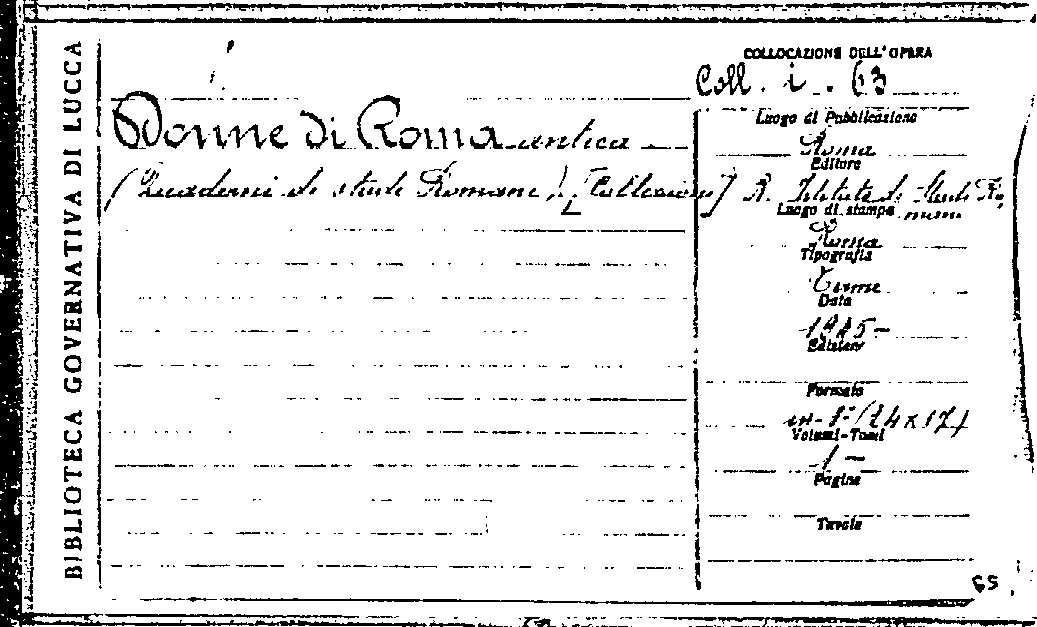 BIBLIOTECA GOVERNATIVA DI LUCCA
COLLOCAZIONE DELL'OPERA
Coll. i. 63
Donne di Roma antica
(Quaderni di studi Romani). [Collezione]
Luogo di Pubblicazione
Roma
Editore
R. Istituto di Studi Romani
Luogo di stampa
Roma
Tipografia
Data
19 5-
Edizione
Formato
in-8° (24 x 17)
Volumi-Tomi
1-
Pagine
Tavole
65